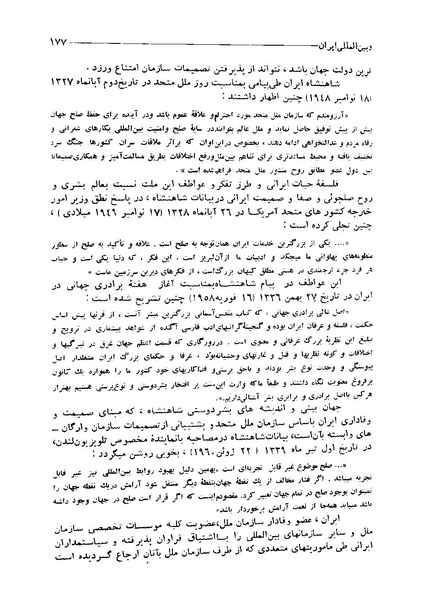 و بین‌المللی ایران ۱۷۷
ترین دولت جهان باشد ، نتواند از پذیرفتن تصمیمات سازمان امتناع ورزد .
شاهنشاه ایران طی پیامی بمناسبت روز ملل متحد در تاریخ دوم آبانماه ۱۳۲۷
(۱۸ نوامبر ۱۹۴۸) چنین اظهار داشتند :
«آرزومندم که سازمان ملل متحد مورد احترام و علاقهٔ عموم باشد ودر آینده برای حفظ صلح جهان
بیش از پیش توفیق حاصل نماید و ملل عالم بتوانند در سایهٔ صلح وامنیت بین‌المللی بکارهای عمرانی و
رفاه مردم و عدالتخواهی ادامه دهند ، بخصوص دراین‌اوان که براثر ملاقات سران کشورها جنگ سرد
تخفیف یافته و محیط مساعدتری برای تفاهم بین‌ملل‌ورفع اختلافات بطریق مسالمت‌آمیز و همکاری‌صمیمانهٔ
بین دول عضو مطابق روح منشور ملل متحد فراهم شده است» .
فلسفهٔ حیات ایرانی و طرز تفکر و عواطف این ملت نسبت بعالم بشری و
روح صلحجوئی و صفا و صمیمت ایرانی دربیانات شاهنشاه ، در پاسخ نطق وزیر امور
خارجه کشور های متحد آمریکا در ۲۶ آبانماه ۱۳۲۸ (۱۷ نوامبر ۱۹۴۹ میلادی) ،
چنین تجلی کرده است :
«.... یکی از بزرگترین خدمات ایران همان‌توجه به صلح است . علاقه و تأکید به صلح از سطور
منظومه‌های پهلوانی ما میچکد و ادبیات ما از آن‌لبریز است . این فکر ، که دنیا یکی است و حیات
هر فرد جزء ارجمندی در هستی مطلق کیهان بزرگ‌است ، از فکرهای دیرین سرزمین ماست .»
این عواطف در پیام شاهنشاه‌بمناسبت آغاز هفتهٔ برادری جهانی در
ایران در تاریخ ۲۷ بهمن ۱۳۳۶ (۱۶ فوریه ۱۹۵۸) چنین تشریح شده است :
«اصل عالی برادری جهانی ، که کتاب مقدس‌آسمانی بزرگترین مبشر آنست ، از قرنها پیش اساس
حکمت ، فلسفه و عرفان ایران بوده و گنجینه‌گرانبهای‌ادب فارسی آکنده از شواهد بیشماری در ترویج و
تبلیغ این نظریهٔ بزرگ عرفانی و معنوی است . درروزگاری که قسمت اعظم جهان غرق در تیرگیها و
اختلافات و کوته نظریها و قتل و غارتهای وحشیانه‌بود ، عرفا و حکمای بزرگ ایران معتقدبه اصل
پیوستگی و وحدت نوع بشر بودند و باحق پرستی‌و فداکاریهای خود کشور ما را همواره یک کانون
پرفروغ معنویت نگاه داشتند و طبعاً ماکه وارث این‌سنت پر افتخار بشردوستی و نوع‌پرستی هستیم بهتراز
هرکس بااصل برادری و برابری بشر آشنائی‌داریم» .
جهان بینی و اندیشه های بشردوستی شاهنشاه ، که مبنای صمیمت و
وفاداری ایران باساس سازمان ملل متحد و پشتیبانی از تصمیمات سازمان وارگان -
های وابسته بآن‌است، بیانات‌شاهنشاه درمصاحبه بانمایندهٔ مخصوص تلویزیون‌لندن،
در تاریخ اول تیر ماه ۱۳۳۹ (۲۲ ژوئن ۱۹۶۰) ، بخوبی روشن میگردد :
«... صلح موضوع غیر قابل تجزیه‌ای است ،بهمین دلیل بهبود روابط بین‌المللی نیز غیر قابل
تجزیه میباشد . اگر فشار مخالف از یک نقطهٔ جهان‌بنقطهٔ دیگر منتقل شود آرامش دریک نقطهٔ جهان را
نمیتوان بوجود صلح در تمام جهان تعبیر کرد. مقصودم‌اینست که اگر قرار است صلح در جهان وجود داشته
باشد میباید همه‌جا از نعمت آرامش برخوردار باشد»
ایران ، عضو وفادار سازمان ملل،عضویت کلیه موسسات تخصصی سازمان
ملل و سایر سازمانهای بین‌المللی را بااشتیاق فراوان پذیرفته و سیاستمداران
ایرانی طی ماموریتهای متعددی که از طرف سازمان ملل بآنان ارجاع گردیده است